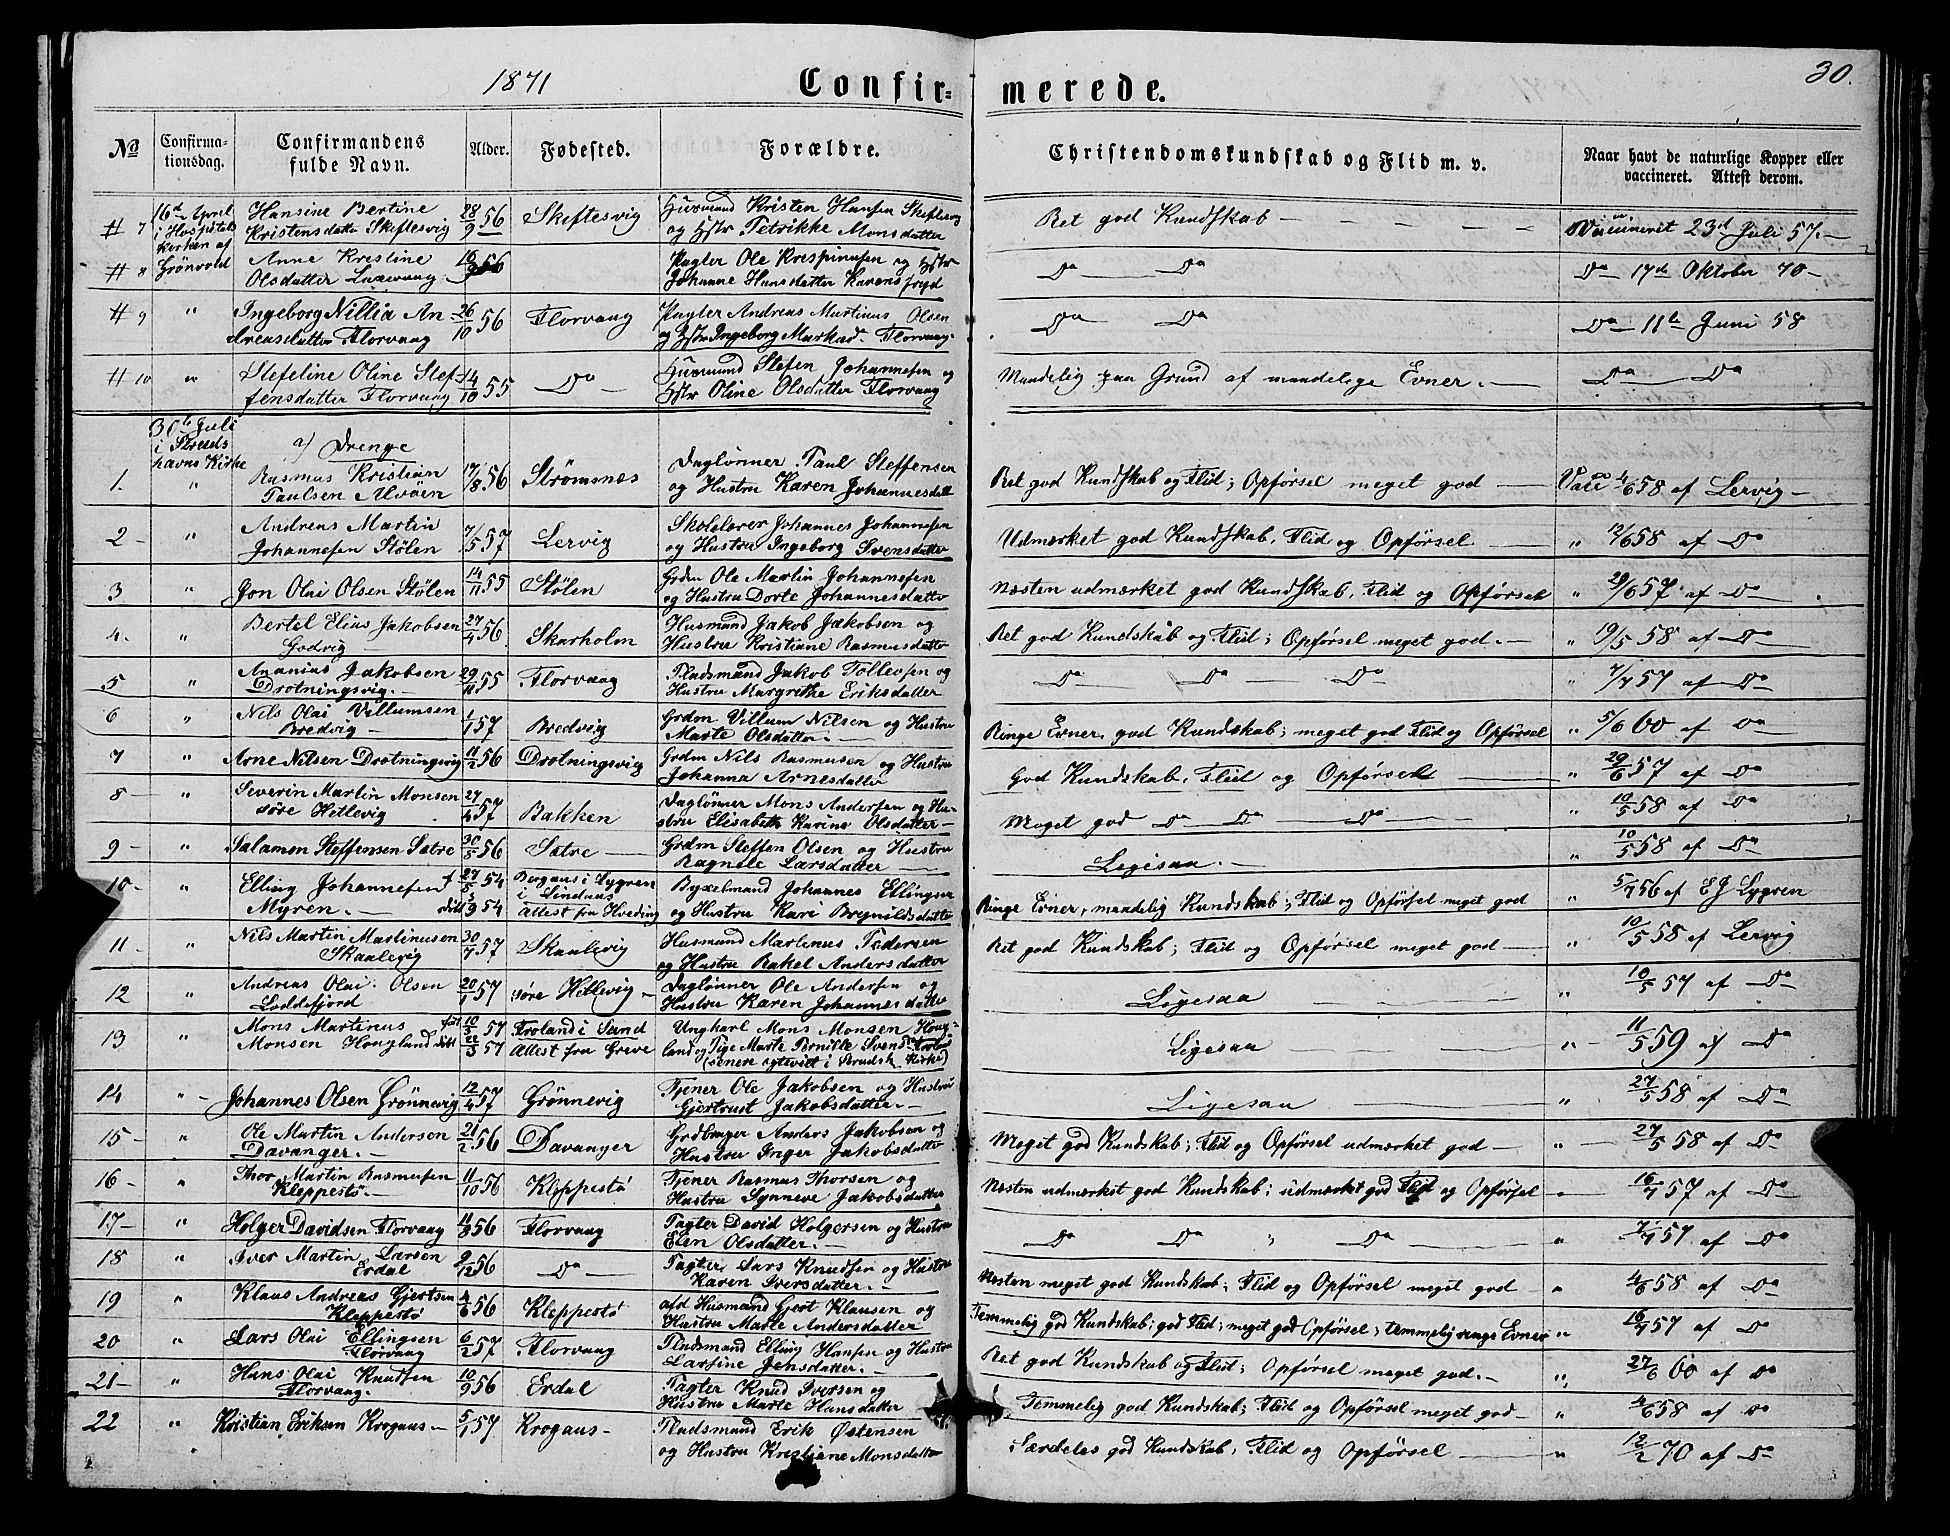 1871
Confirmerede.
30.
No
Confirmationsdag.
Confirmandens fulde Navn.
Alder.
Fødested.
Forældre.
Christendomskundskab og Flid m. v.
Naar havt de naturlige Kopper eller vaccineret. Attest derom.
# 7 16de April i Hospitals Kirken af Grönvold Hansine Bertine Kristensdatter Skeftesvig 28/9 56 Skeftesvig Husmand Kristen Hansen Skeftesvig og Hstr Petrikke Monsdatter Ret god Kundskab — Vaccineret 23d Juli 57.—
# 8 Anne Kristine Olsdatter Pagter Ole Krispinusen og Hstr Johanne Hansdatter Do Do Do 17de Oktober 70—
# 9 " Ingeborg Nillia Andreasdatter Florvaag 26/10 56 Florvaag Pagter Andreas Martinus Olsen og Hstr Ingeborg Markusd. Florvaag Do Do Do 11te Juni 58
# 10 " Stefeline Oline Steffensdatter Florvaag 14/10 55 Do Husmand Stefen Johannesen og Hstr Oline Olsdatter Florvaag Maadelig paa Grund af maadelige Evner.— Do Do
30te Juli i Strudshavns Kirke
a) Drenge
1. " Rasmus Kristian Paulsen Alvöen 17/8 56 Strömsnes Daglönner Paul Steffensen og Hustru Karen Johannesdatt Ret god Kundskab og Flid; Opförsel meget god — Vacc 4/6 58 af Lervig—
2 — " Andreas Martin Johannesen Stölen 7/5 57 Lervig Skolelærer Johannes Johannesen og Hustru Ingeborg Svensdatter Udmærket god Kundskab, Flid og Opförsel — " 12/6 58 af Do
3 " Jon Olai Olsen Stölen 14/11 55 Stölen Grdm Ole Martin Johannesen og Hustru Dorte Johannesdatter Næsten udmærket god Kundskab, Flid og Opförsel " 29/6 57 af Do
4. " Bertel Elias Jakobsen Godvig 27/4 56 Skarholm Husmand Jakob Jakobsen og Hustru Kristiane Rasmusdatter Ret god Kundskab og Flid; Opförsel meget god.— " 19/5 58 af Do
5 " Ananias Jakobsen Drotningsvig.— 29/11 55 Florvaag Pladsmand Jakob Tollefsen og Hustru Margrethe Eriksdatter Do Do Do 7/7 57 af Do
6 " Nils Olai Villumsen Bredvig— 1/1 57 Bredvig Grdm Villum Nilsen og Hustru Marte Olsdatter Ringe Evner, god Kundskab; meget god Flid og Opförsel " 5/6 60 af Do
7 " Arne Nilsen Drotningsvig 11/2 56 Drotningsvig Grdm Nils Rasmusen og Hustru Johanna Arnesdatter God Kundskab, Flid og Opförsel " 29/6 57 af Do
8 — " Severin Martin Monsen söre Hetlevig 27/4 57 Bakken Daglönner Mons Andersen og Hustru Elisabeth Karine Olsdatter— Meget god Do Do Do " 10/5 58 af Do
9 — " Salamon Steffensen Sætre 30/5 56 Sætre Grdm Steffen Olsen og Hustru Ragnile Larsdatter Ligesaa.— " 10/5 58 af Do
10 — " Elling Johannesen Myren.— f 27/5 54 döbt 3/9 54 i Lindaas Attest fra Hveding Bygselmand Johannes Ellingsen og Hustru Kari Brynildsdatter Ringe Evner, maadelig Kundskab; Flid og Opförsel meget god " 5/7 56 af E J Lygren
11 — " Nils Martin Martinusen Skaalevig 30/7 57 Skaalevig Husmand Martinus Pedersen og Hustru Rakel Andersdatter Ret god Kundskab; Flid og Opförsel meget god " 10/5 58 af Lervig
12 " Andreas Olai Olsen Loddefjord 20/1 57 söre Hetlevig— Daglönner Ole Andersen og Hustru Karen Johannesdatter Ligesaa " 10/5 57 af Do
13 " Mons Martinus Monsen Hougland föd 10/3 57 döbt 22/3 57 Froland i Sund Attest fra Greve Ungkarl Mons Monsen Hougland og Pige Marte Pernille Svendsd (senere egteviet i Strudsh Kirke) Ligesaa "— 11/5 59 af Do
14 " — Johannes Olsen Grönnevig 12/4 57 Grönnevig Tjener Ole Jakobsen og Hustru Gjertrud Jakobsdatter.— Ligesaa " 27/5 58 af Do
15 — " Ole Martin Andersen Davanger.— 21/2 56 Davanger Grdbruger Anders Jakobsen og Hustru Inger Jakobsdatter Meget god Kundskab; Flid og Opförsel udmærket god — " 27/5 58 af Do
16 — " Thor Martin Rasmusen Kleppestö.— 11/10 56 Kleppestö Tjener Rasmus Thorsen og Hustru Synneve Jakobsdatter Næsten udmærket god Kundskab; udmærket god Flid og Opförsel " 16/7 57 af Do
17 — " Holger Davidsen Florvaag 11/8 56 Florvaag Pagter David Holgersen og Hustru Elen Olsdatter.— Do Do " Do " 7/7 57 af Do
18 " Iver Martin Larsen Erdal 9/12 56 Do Pagter Lars Knudsen og Hustru Karen Iversdatter.— Næsten meget god Kundskab; Flid og Opförsel meget god — " 4/6 58 af Do
19 " Klaus Andreas Gjertsen Kleppestö 4/6 56 Kleppestö afd Husmand Gjert Klausen og Hustru Marte Andersdatter Temmelig god Kundskab; god Flid; meget god Opförsel; temmelig ringe Evner " 16/7 57 af Do
20 " Lars Olai Ellingsen Florvaag 6/2 57 Florvaag Pladsmand Elling Hansen og Hustru Larsine Jensdatter.— Ret god Kundskab og Flid; Opförsel meget god.— " 27/6 60 af Do
21 — " Hans Olai Knudsen Florvaag. 10/9 56 Erdal Pagter Knud Iversen og Hustru Marte Hansdatter Temmelig god Kundskab; Flid og Opförsel meget god— " 4/6 58 af Do
22 " Kristian Eriksen Krogaas— 5/1 57 Krogaas— Pladsmand Erik Östensen og Hustru Kristiane Monsdatter Særdeles god Kundskab, Flid og Opförsel " 12/2 70 af Do